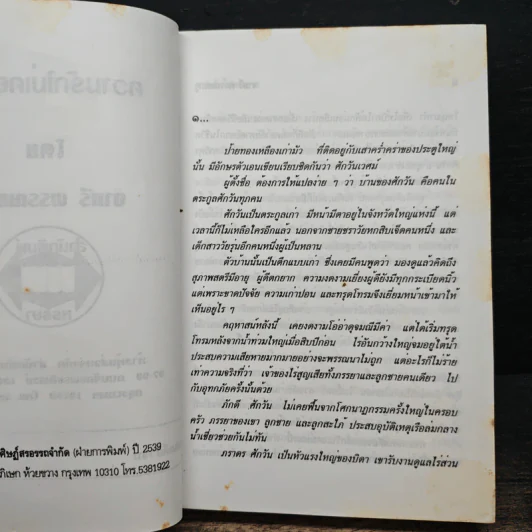 ดิษฐ์สรอรรถจำกัด (ฝ่ายการพิมพ์) ปี 2539
ภิเษก ห้วยขวาง กรุงเทพ 10310 โทร.5381922
๑...
ป้ายทองเหลืองเก่ามัว ที่ติดอยู่กับเสาคร่ำคร่าของประตูใหญ่
นั้น มีอักษรตัวเอนเขียนเรียบชิดกันว่า ศักวันเวศม์
ผู้ตั้งชื่อ ต้องการให้แปลง่าย ๆ ว่า บ้านของศักวัน คือคนใน
ตระกูลศักวันทุกคน
ศักวันเป็นตระกูลเก่า มีหน้ามีตาอยู่ในจังหวัดใหญ่แห่งนี้ แต่
เวลานี้ก็ไม่เหลือใครอีกแล้ว นอกจากชายชราวัยหกสิบเจ็ดคนหนึ่ง และ
เด็กสาววัยรุ่นอีกคนหนึ่งผู้เป็นหลาน
ตัวบ้านนั้นเป็นตึกแบบเก่า ซึ่งเคยมีคนพูดว่า มองดูแล้วคิดถึง
สุภาพสตรีมีอายุ ผู้ตกยาก ความงดงามเยี่ยงผู้ดียังมีทุกกระเบียดนิ้ว
แต่เพราะขาดปัจจัย ความเก่าปอน และทรุดโทรมจึงเยี่ยมหน้าเข้ามาให้
เห็นอยู่ไร ๆ
คฤหาสน์หลังนี้ เคยงดงามโอ่อ่าดุจมณีมีค่า แต่ได้เริ่มทรุด
โทรมหลังจากน้ำท่วมใหญ่เมื่อสิบปีก่อน ไร่อันกว้างใหญ่จมอยู่ใต้น้ำ
ประสบความเสียหายมากมายอย่างจะพรรณนาไม่ถูก แต่อะไรก็ไม่ร้าย
เท่าความจริงที่ว่า เจ้าของไร่สูญเสียทั้งภรรยาและลูกชายคนเดียว ไป
กับอุทกภัยครั้งนั้นด้วย
ภักดี ศักวัน ไม่เคยฟื้นจากโศกนาฏกรรมครั้งใหญ่ในครอบ
ครัว ภรรยาของเขา ลูกชาย และลูกสะใภ้ ประสบอุบัติเหตุเรือล่มกลาง
น้ำเชี่ยวช่วยกันไม่ทัน
ภราดร ศักวัน เป็นหัวแรงใหญ่ของบิดา เขารับงานดูแลไร่ส่วน